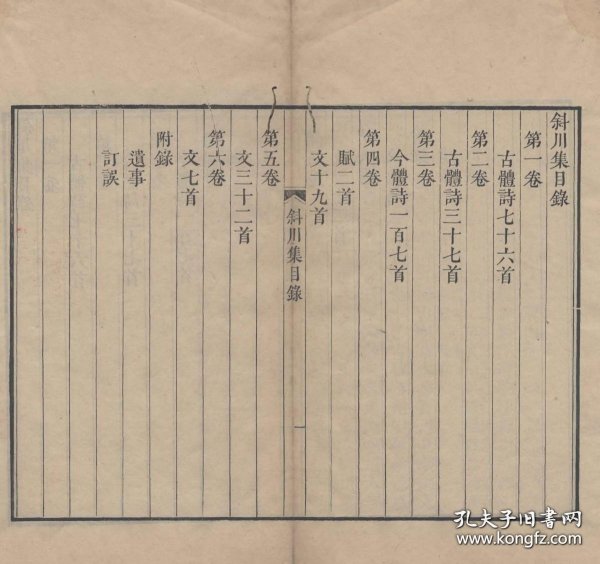 斜川集目錄
第一卷
古體詩七十六首
第二卷
古體詩三十七首
第三卷
今體詩一百七首
第四卷
賦二首
文十九首
斜川集目錄
一
第五卷
文三十二首
第六卷
文七首
附錄
遺事
訂誤
孔夫子旧书网
www.kongfz.com